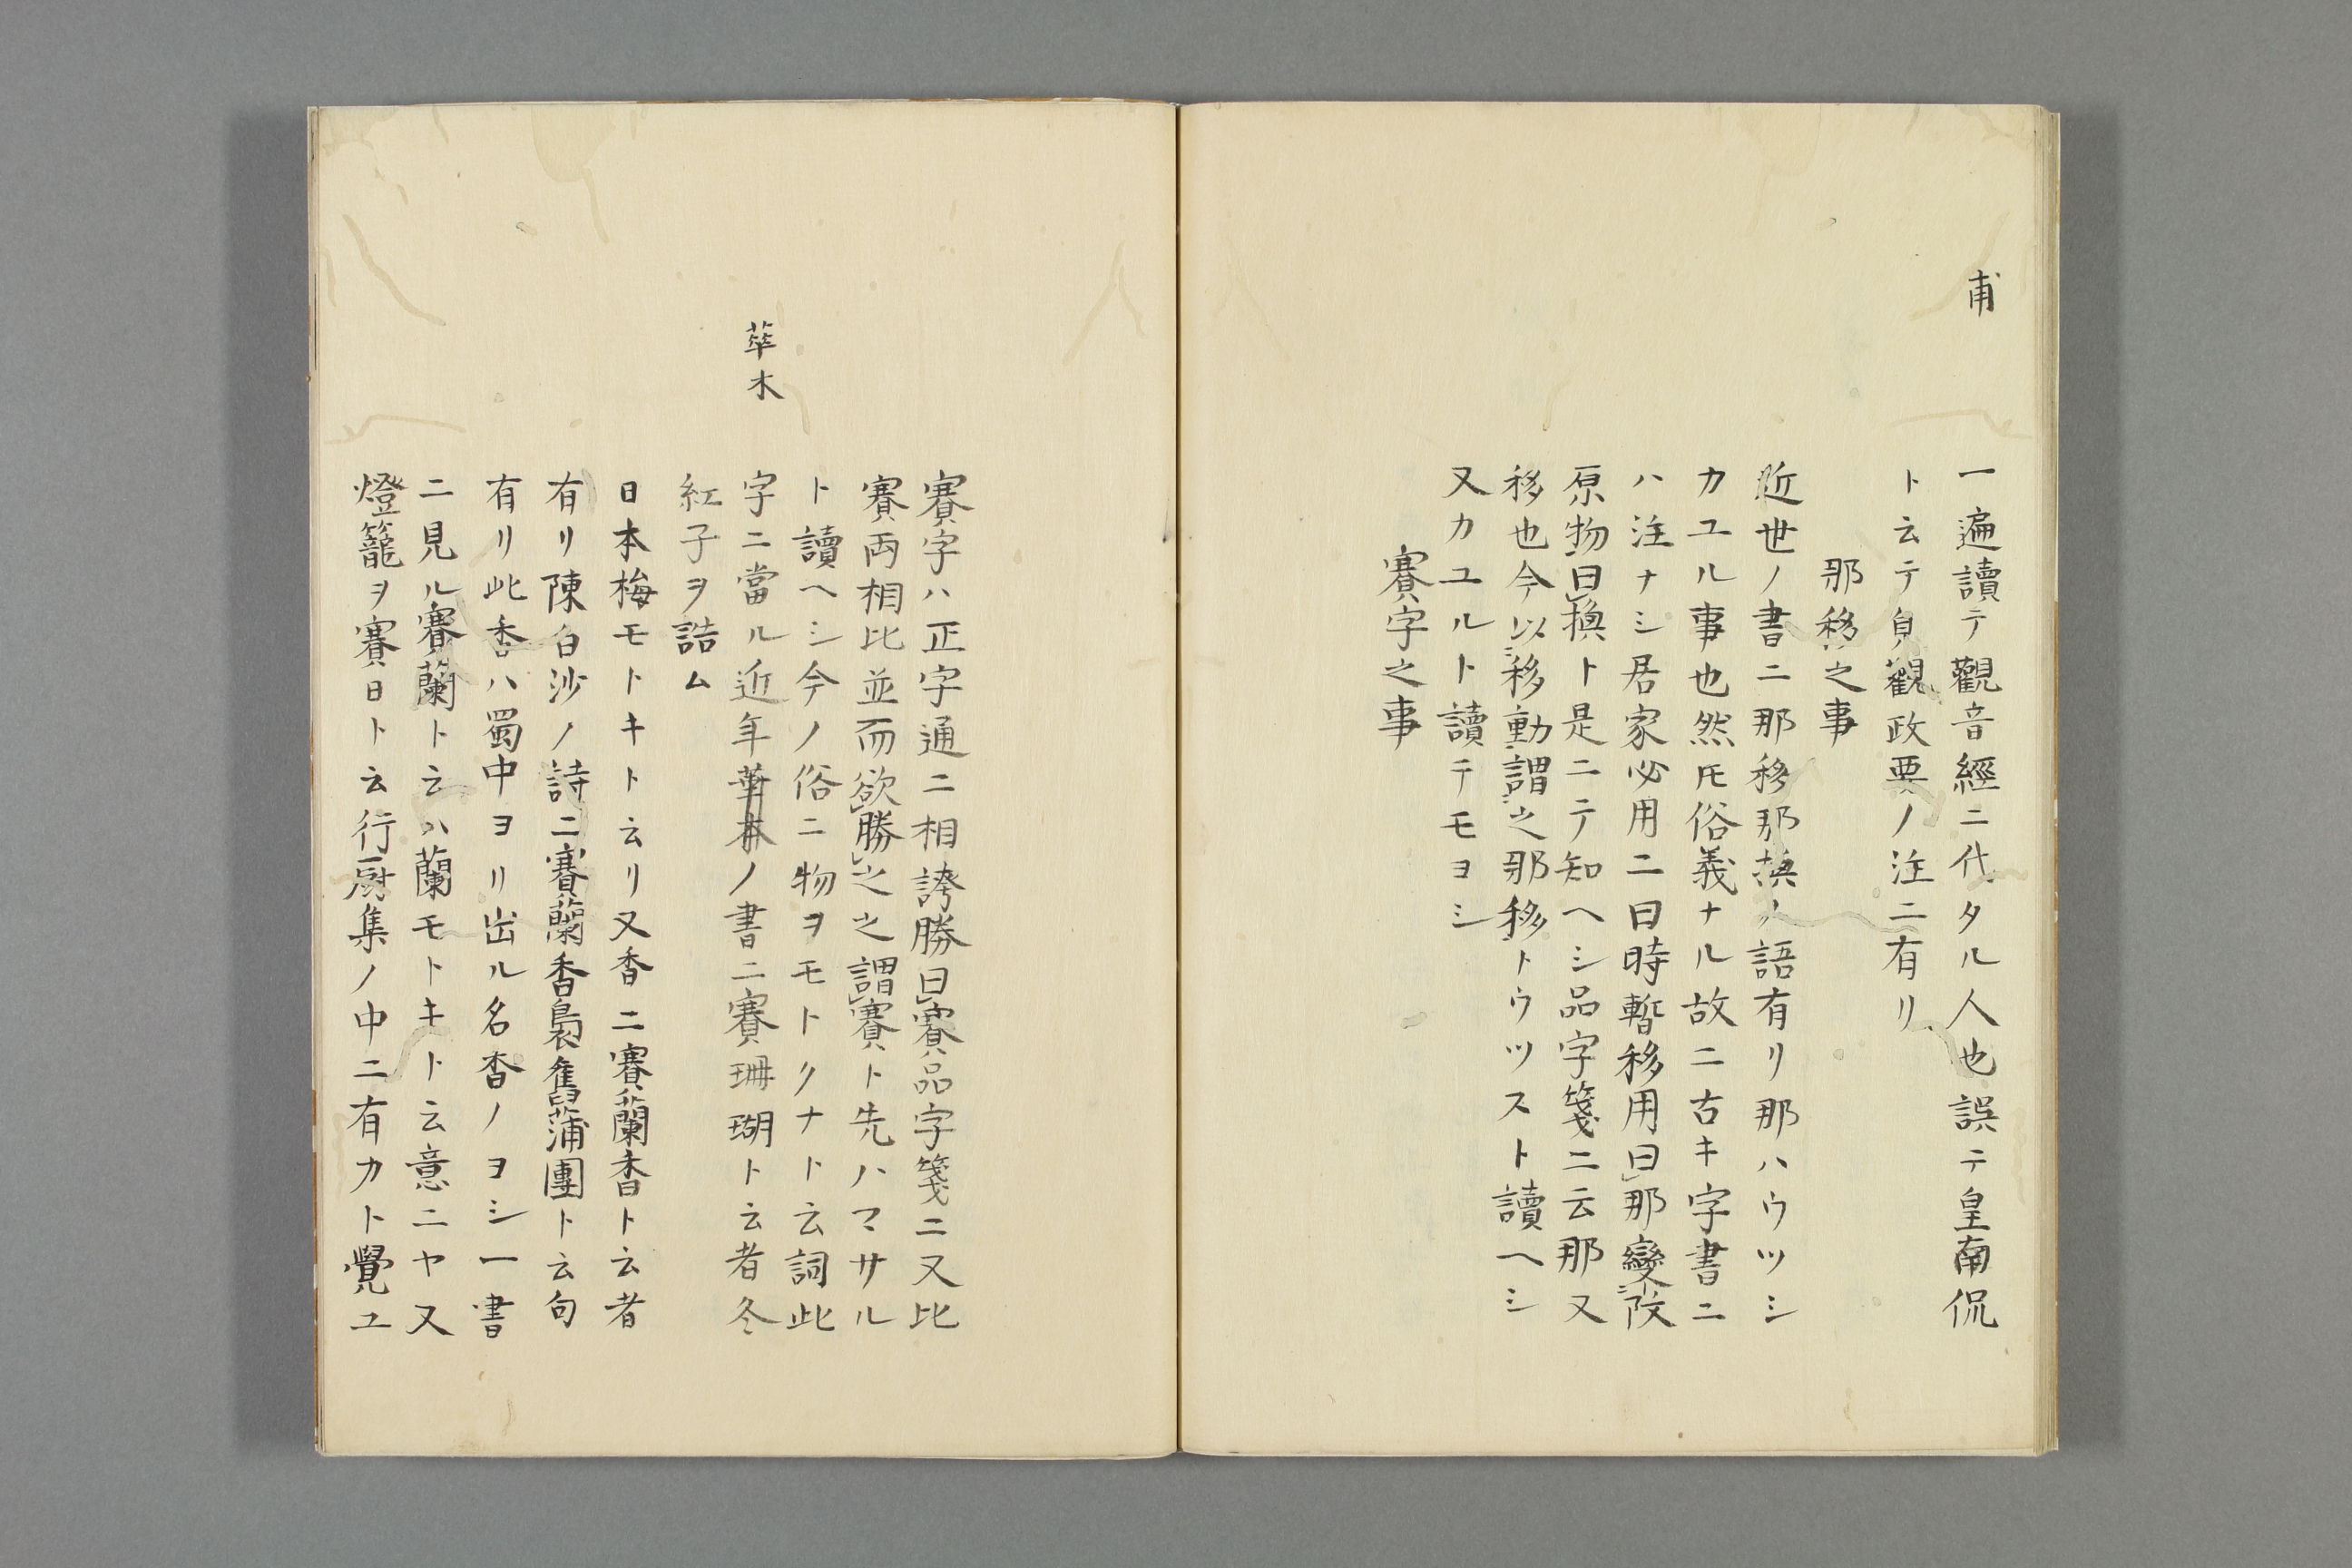 甫
一遍讀テ觀音經ニ代タル人也誤テ皇南侃
ト云テ貞觀政要ノ注ニ有リ
那移之事
近世ノ書ニ那移那換ノ語有リ那ハウツシ
カユル事也然𪜈俗義ナル故ニ古キ字書ニ
ハ注ナシ居家必用ニ曰時暫移用曰那變改
原物曰換ト是ニテ知ヘシ品字箋ニ云那又
移也今以移動謂之那移トウツスト讀ヘシ
又カユルト讀テモヨシ
賽字之事
賽字ハ正字通ニ相誇勝曰賽品字箋ニ又比
賽両相比並而欲勝之之謂賽ト先ハマサル
ト讀ヘシ今ノ俗ニ物ヲモトクナト云詞此
華木
字ニ當ル近年華木ノ書ニ賽珊瑚ト云者冬
紅子ヲ誥ム
日本梅モトキト云リ又香ニ賽蘭香ト云者
有リ陳白沙ノ詩ニ賽蘭香裊舊蒲團ト云句
有リ此香ハ蜀中ヨリ出ル名香ノヨシ一書
ニ見ル賽蘭ト云ハ蘭モトキト云意ニヤ又
燈籠ヲ賽日ト云行厨集ノ中ニ有カト覺ユ